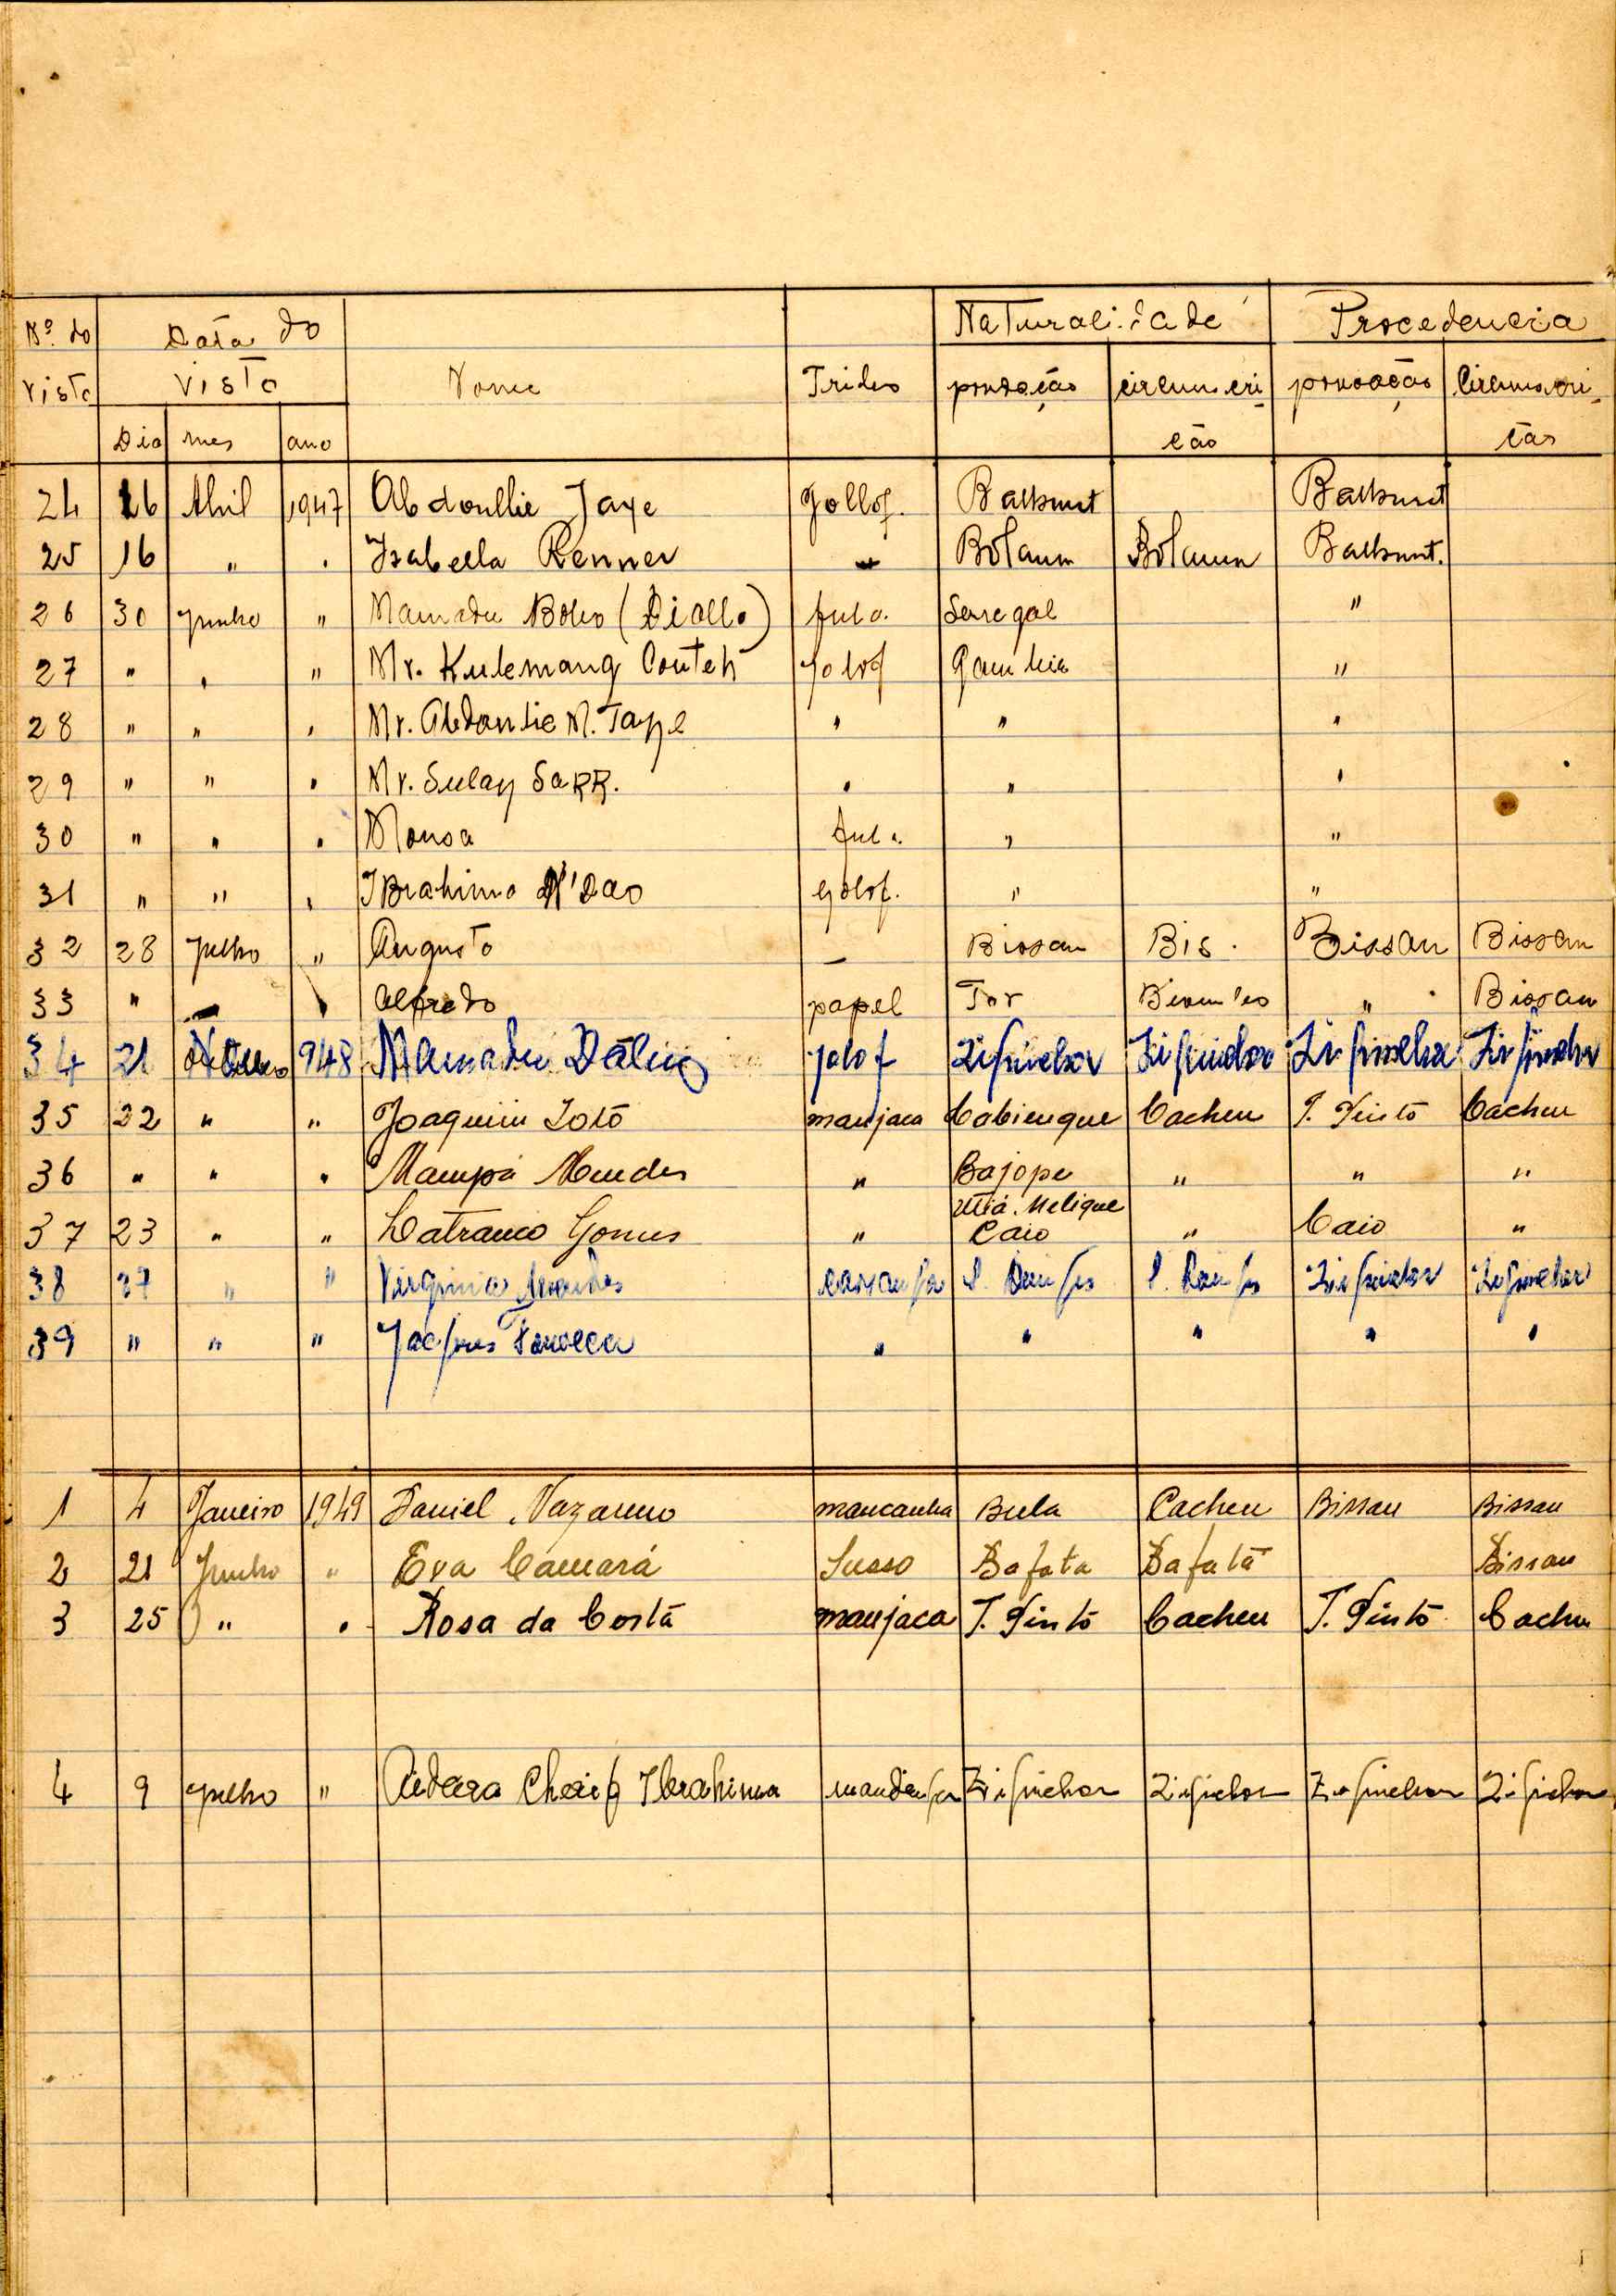 Nº do Data do Naturalidade Procedencia
Visto Visto Nome Tribo povoação circunscri- povoação Circunscri-
Dia mes ano cão cão
24 16 Abril 1947 Abdoullie Jaye Jollof. Bathurst Bathurst
25 16 " . Isabella Renner " Bolama Bolama Bathurst.
26 30 Junho " Mamadu Bobo (Diallo) fula. Senegal "
27 " " " Mr. Kulemang Conteh Jolof Gambia "
28 " " " Mr. Abdoulie M. Jaye " " "
29 " " " Mr. Sulay SaRR. " " "
30 " " " Monsa fula. " "
31 " " " IBrahima N'Dao Golof. " "
32 28 Julho " Augusto — Bissau Bis. Bissau Bissau
33 " " Alfredo papel Tor Biombo " Bissau
34 21 948 Mamadu jolof Zifuichor Zifuichor Zifuichor Zifuichor
35 22 " " Joaquim Totó manjaca Cobienque Cacheu T. Pinto Cacheu
36 " " " Mampá Mendes " Bajope " " "
Utiá. Melique
37 23 " " Latranco Gomes " Caio " Caio "
38 27 " " Virginia Mendes cassanga S. Domgos S. Domgos Ziguichor Ziguichor
39 " " " Jacques Fonseca " " " " "
1 4 Janeiro 1949 Daniel Nazareno mancanha Bula Cacheu Bissau Bissau
2 21 Junho " Eva Camará Susso Bafata Bafatá Bissau
3 25 " " Rosa da Costa manjaca T. Pinto Cacheu T. Pinto Cacheu
4 9 Julho " Aidara Cherif Ibrahima mandinga Ziguinchor Ziguichor Ziguinchor Ziguichor